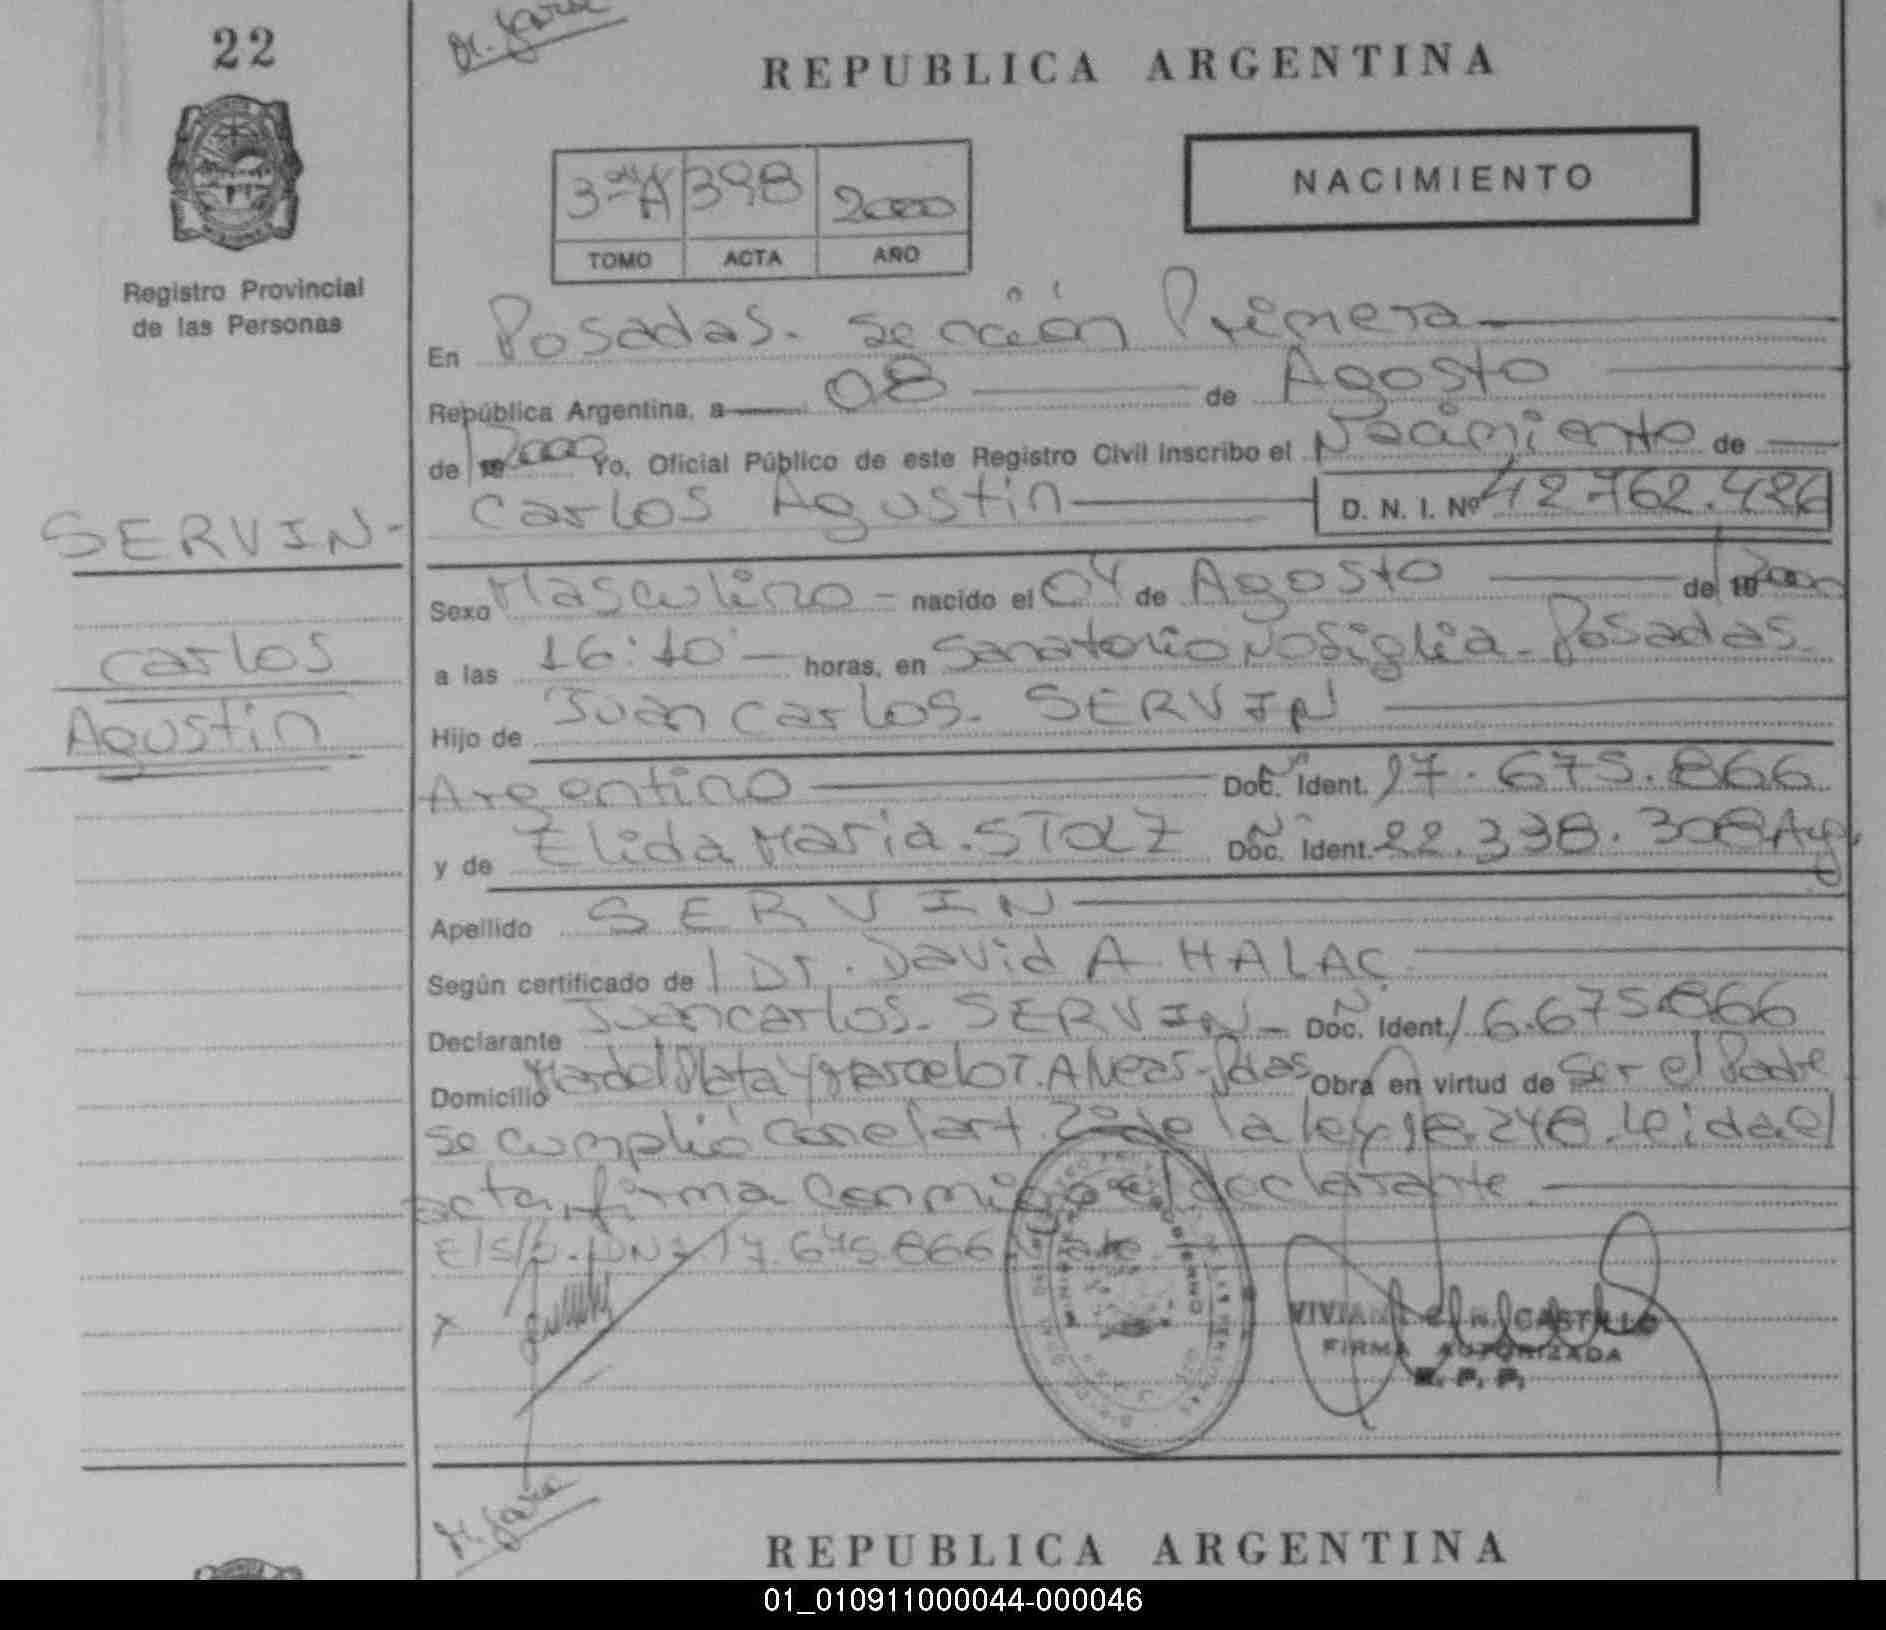 22
REPUBLICA ARGENTINA
NACIMIENTO
3 A 398 2000
TOMO ACTA AÑO
Registro Provincial
de las Personas
En Posadas. Sección Primera
República Argentina, a 08 de Agosto
de 2000 Yo, Oficial Público de este Registro Civil inscribo el Nacimiento de
Carlos Agustin D. N. I. Nº 42.762.426
SERVIN-
Carlos
Agustin
Sexo Masculino - nacido el 04 de Agosto de 19 2000
a las 16:10 horas, en Sanatorio Nosiglia - Posadas.
Hijo de Juan Carlos. SERVIN
Argentino Doc. Ident. 17.675.866
y de Elida Maria. STOLZ Doc. Ident. 22.338.308 Arg.
Apellido SERVIN
Según certificado de Dr. David A HALAC
Declarante Juan Carlos. SERVIN - Doc. Ident. 16.675.866
Domicilio Mar del Plata y Marcelo T. Alvear - Pdas Obra en virtud de Ser el Padre
se cumplió con el art. 2º de la ley 18.248. leida el
acta, firma conmigo el declarante
E/S/b. DNI 17.675.866 Vale
X
CASTILLO
FIRMA AUTORIZADA
R. P. P.
REPUBLICA ARGENTINA
01_010911000044-000046